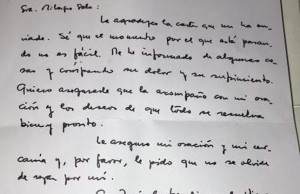 Sra. Milagro Sala:
Le agradezco la carta que me ha en-
viado. Sé que el momento por el que está pasan-
do no es fácil. Me he informado de algunas co-
sas y comprendo su dolor y su sufrimiento.
Quiero asegurarle que la acompaño con mi ora-
ción y los deseos de que todo se resuelva
bien y pronto.
Le aseguro mi oración y mi cer-
canía y, por favor, le pido que no se olvide
de rezar por mí.